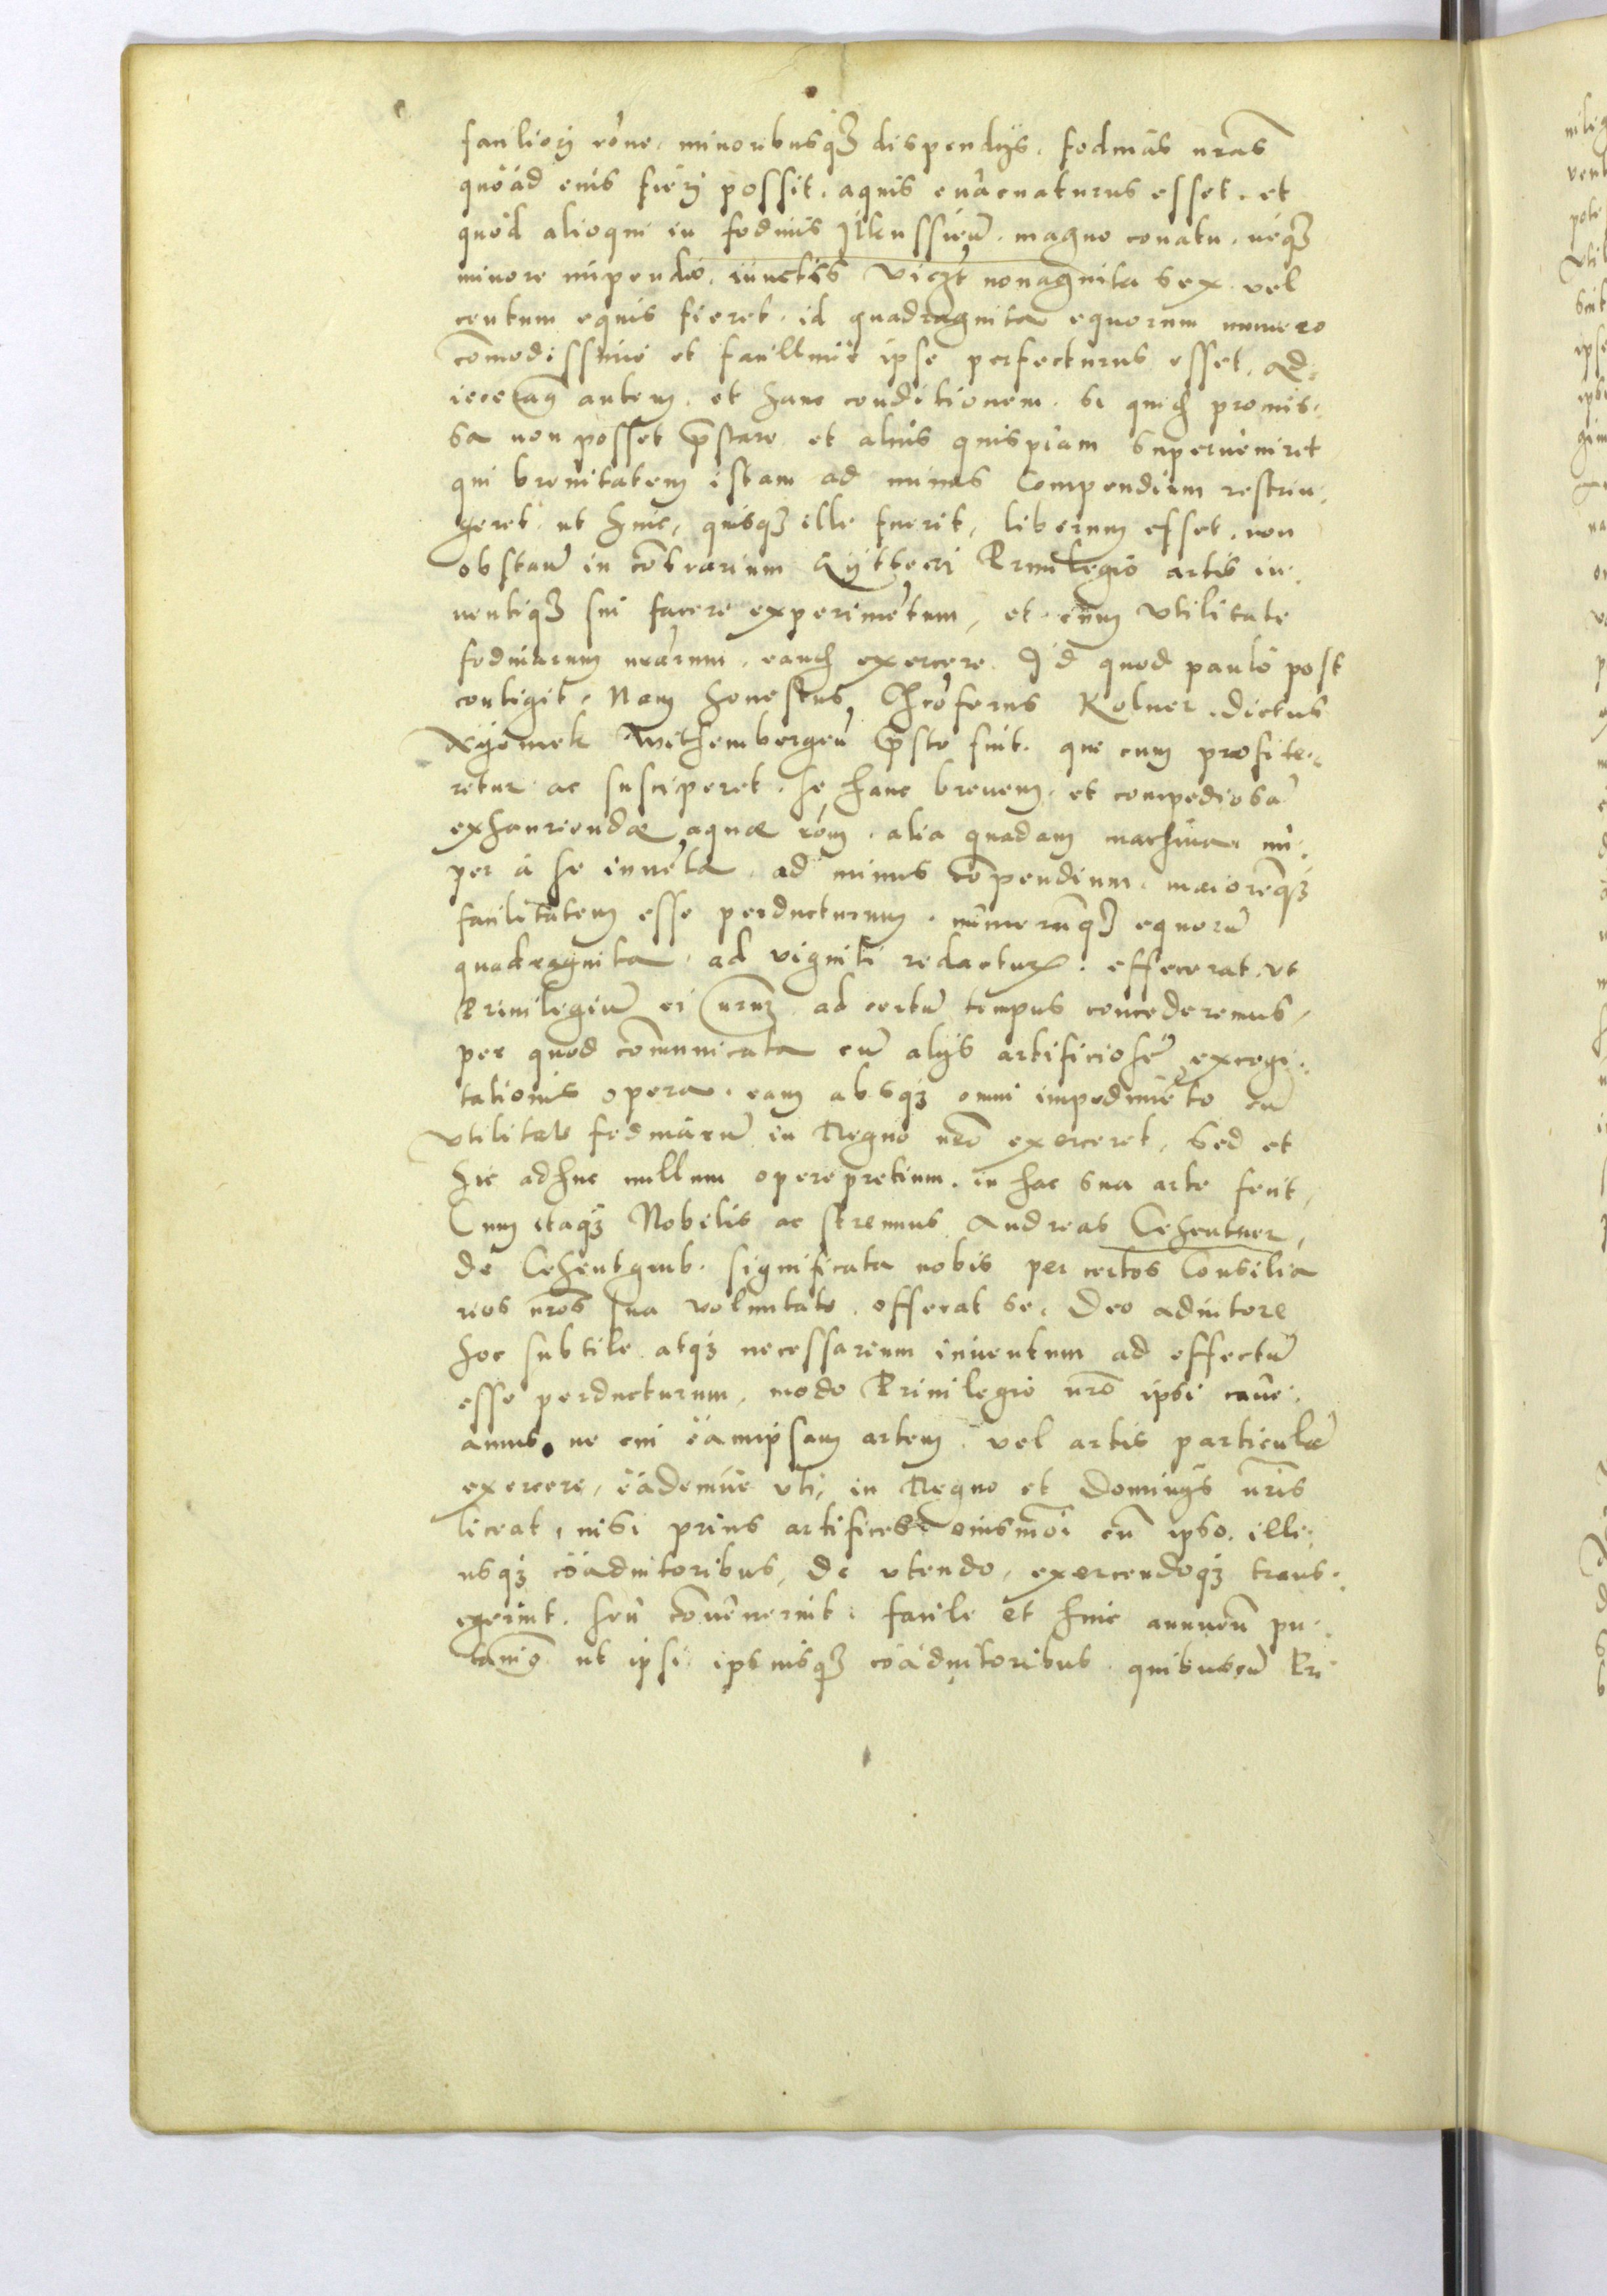 faciliori rone, minoribusq3 dispendijs, fodinas nras
quoad eius fieri possit, aquis evacuaturus esset, et
quod alioqui in fodinis magno conatu, neq3
minore impendio, iunctis vicz nonaginta sex vel
centum equis fieret, id quadraginta equorum numero
comodissime et facillime ipse perfecturus esset. Ad-
autem et hanc conditionem, si promis-
sa non posset pstare et alius quispiam superveniret
qui brevitatem istam ad minus Compendium restrin-
geret, ut huic, quisq3 ille fuerit, liberum esset, non
obstan in contrarium Privilegio artis in-
ventiq3 sui facere experimetum, et cum utilitate
fodinarum nrarum, exercere. Id quod paulo post
contigit, Nam honestus Chroferus Kolner dictus
Withembergen psto fuit, qui cum profite-
retur ac susciperet, se hanc brevem et compediosa
exhauriendæ aquæ rom, alia quadam machina nu-
per a se inveta, ad minus compendium, maioremq3
facilitatem esse perducturum, numerumq3 equoru
quadraginta ad viginti redactur, effecerat, ut
Privilegiu ei nrum ad certu tempus concederemus,
per quod comunicata cu alijs excogi-
tationis opera, eam absq3 omni impedimeto cu
utilitate fodinaru in Regno nro exerceret, Sed et
hic adhuc nullum operepretium in hac sua arte fecit,
Cum itaq3 Nobilis ac strenuus Andreas Cehentner,
de Cehentgrub, significata nobis per certos Consilia
rios nros sua voluntate, offerat se, Deo adiutore
hoc subtile atq3 necessarium inventum ad effectu
esse perducturum, modo Privilegio nro ipsi cave-
amus, ne cui eamipsam artem, vel artis particula
exercere, eademve uti, in Regno et Dominijs nris
liceat, nisi prius artifices eiusmoi cu ipso, illi-
usq3 coadiutoribus, de utendo, exercendoq3 trans-
egerint, seu convenerint, facile et huic annuen pu-
tamo ut ipsi ipsiusq3 coadiutoribus, quibuscu Pri-